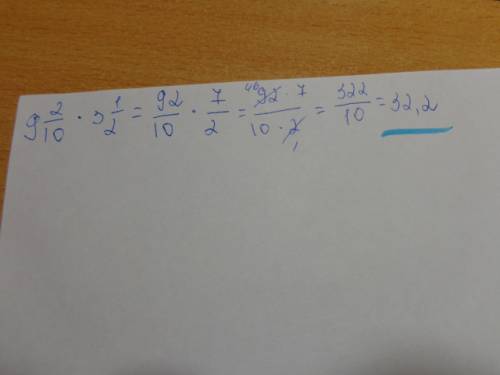 9 2/10 · 3 1/2 = 92/10 · 7/2 = 46 92 · 7 / 10 · 2 1 = 322/10 = 32,2